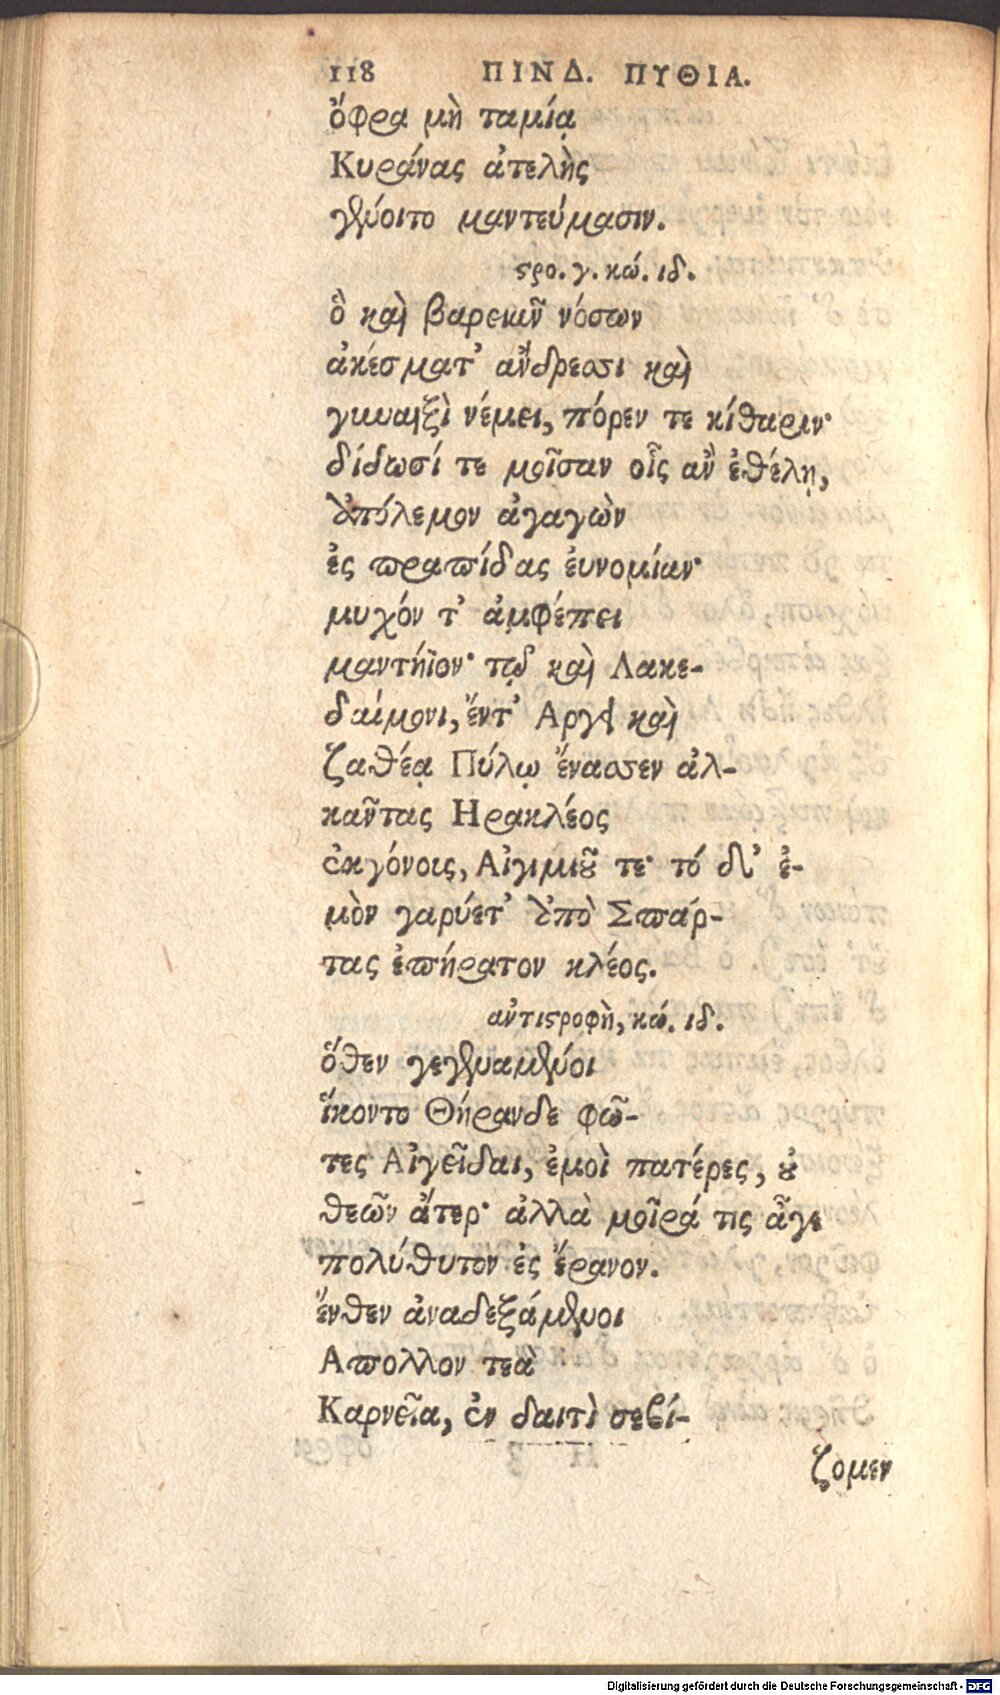 118 ΠΙΝΔ. ΠΥΘΙΑ.
ὄφρα μὴ ταμίᾳ
Κυράνας ἀτελὴς
γένοιτο μαντεύμασιν.
στρο. γ. κώ. ιδ.
ὃ καὶ βαρειῶν νόσων
ἀκέσματ' ἄνδρεσσι καὶ
γυναιξὶ νέμει, πόρεν τε κίθαριν·
δίδωσί τε μοῖσαν οἷς ἂν ἐθέλῃ,
ἀπόλεμον ἀγαγὼν
ἐς πραπίδας εὐνομίαν·
μυχόν τ' ἀμφέπει
μαντήϊον· τῷ καὶ Λακε-
δαίμονι, ἔντ' Αργει καὶ
ζαθέᾳ Πύλῳ ἔνασσεν ἀλ-
κᾶντας Ηρακλέος
ἐκγόνοις, Αἰγιμιοῦ τε· τό δ' ἐ-
μὸν γαρύετ' ἀπὸ Σπάρ-
τας ἐπήρατον κλέος.
ἀντιστροφὴ, κώ. ιδ.
ὅθεν γεγεναμένοι
ἵκοντο Θήρανδε φῶ-
τες Αἰγεῖδαι, ἐμοὶ πατέρες, οὐ
θεῶν ἄτερ· ἀλλὰ μοῖρά τις ἆγε
πολύθυτον ἐς ἔρανον.
ἔνθεν ἀναδεξάμενοι
Απολλον τεᾶ
Καρνεῖα, ἐν δαιτὶ σεβί-
ζομεν
Digitalisierung gefördert durch die Deutsche Forschungsgemeinschaft - DFG